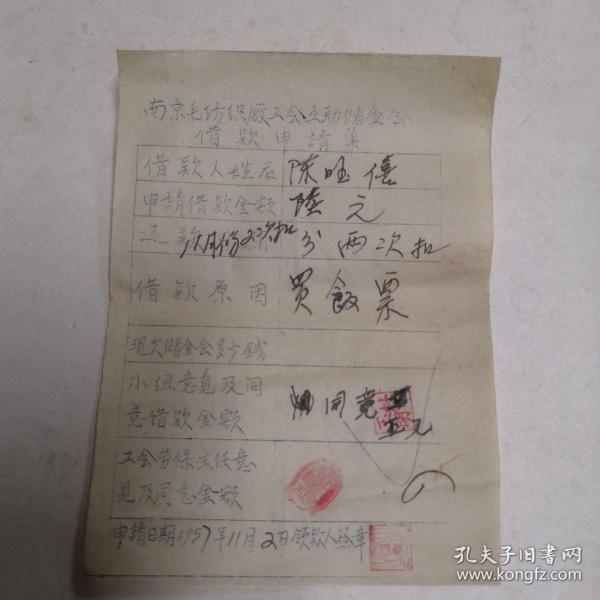 南京毛纺织厰工会互助储金会
借款申請单
借款人姓名 陈旺僖
申請借款金额 陸元
还款 月份 分两次扣
借款原因 買飯票
现欠储金会多少钱
小组意見及同 同意
意借款金额 五元
工会劳保主任意
見及同意金额
申請日期1957年11月2日领款人簽章
孔夫子旧书网
www.kongfz.com